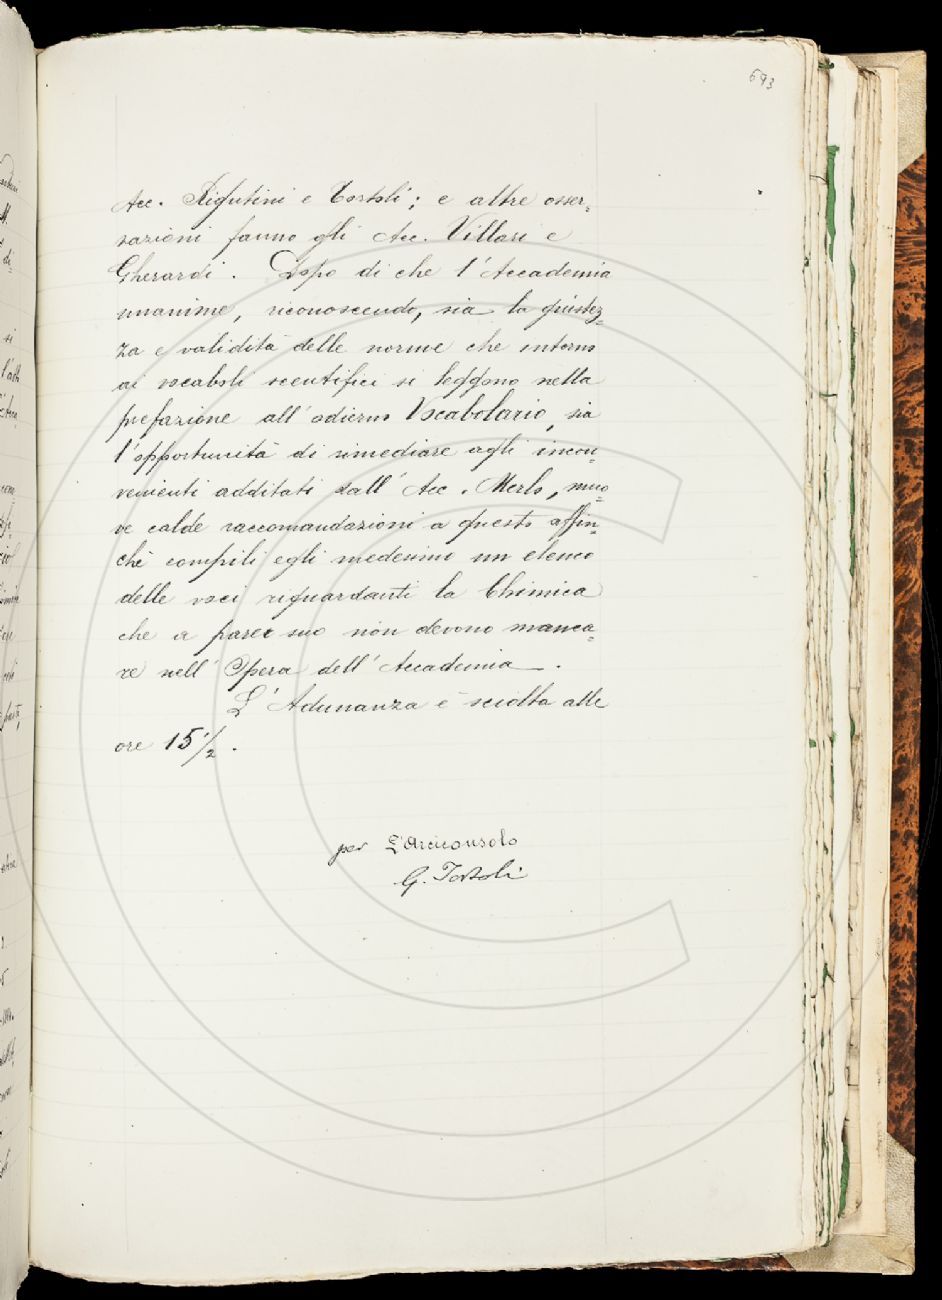 693
Acc. Rigutini e Tortoli; e altre osser=
vazioni fanno gli Acc. Villari e
Gherardi. Dopo di che l'Accademia
unanime, riconoscendo, sia la giustez=
za e validità delle norme che intorno
ai vocaboli scentifici si leggono nella
prefazione all'odierno Vocabolario, sia
l'opportunità di rimediare agli incon=
venienti additati dall'Acc. Merlo, muo=
ve calde raccomandazioni a questo affin=
chè compili egli medesimo un elenco
delle voci riguardanti la Chimica
che a parer suo non devono manca=
re nell'Opera dell'Accademia.
L'Adunanza è sciolta alle
ore 15 1/2.
per L'Arciconsolo
G. Tortoli